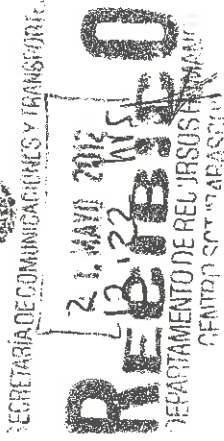 SECRETARÍA DE COMUNICACIONES Y TRANSPORTE
MAYO
12:22
RECIBIDO
DEPARTAMENTO DE RECURSOS HUMANO
CENTRO SCT